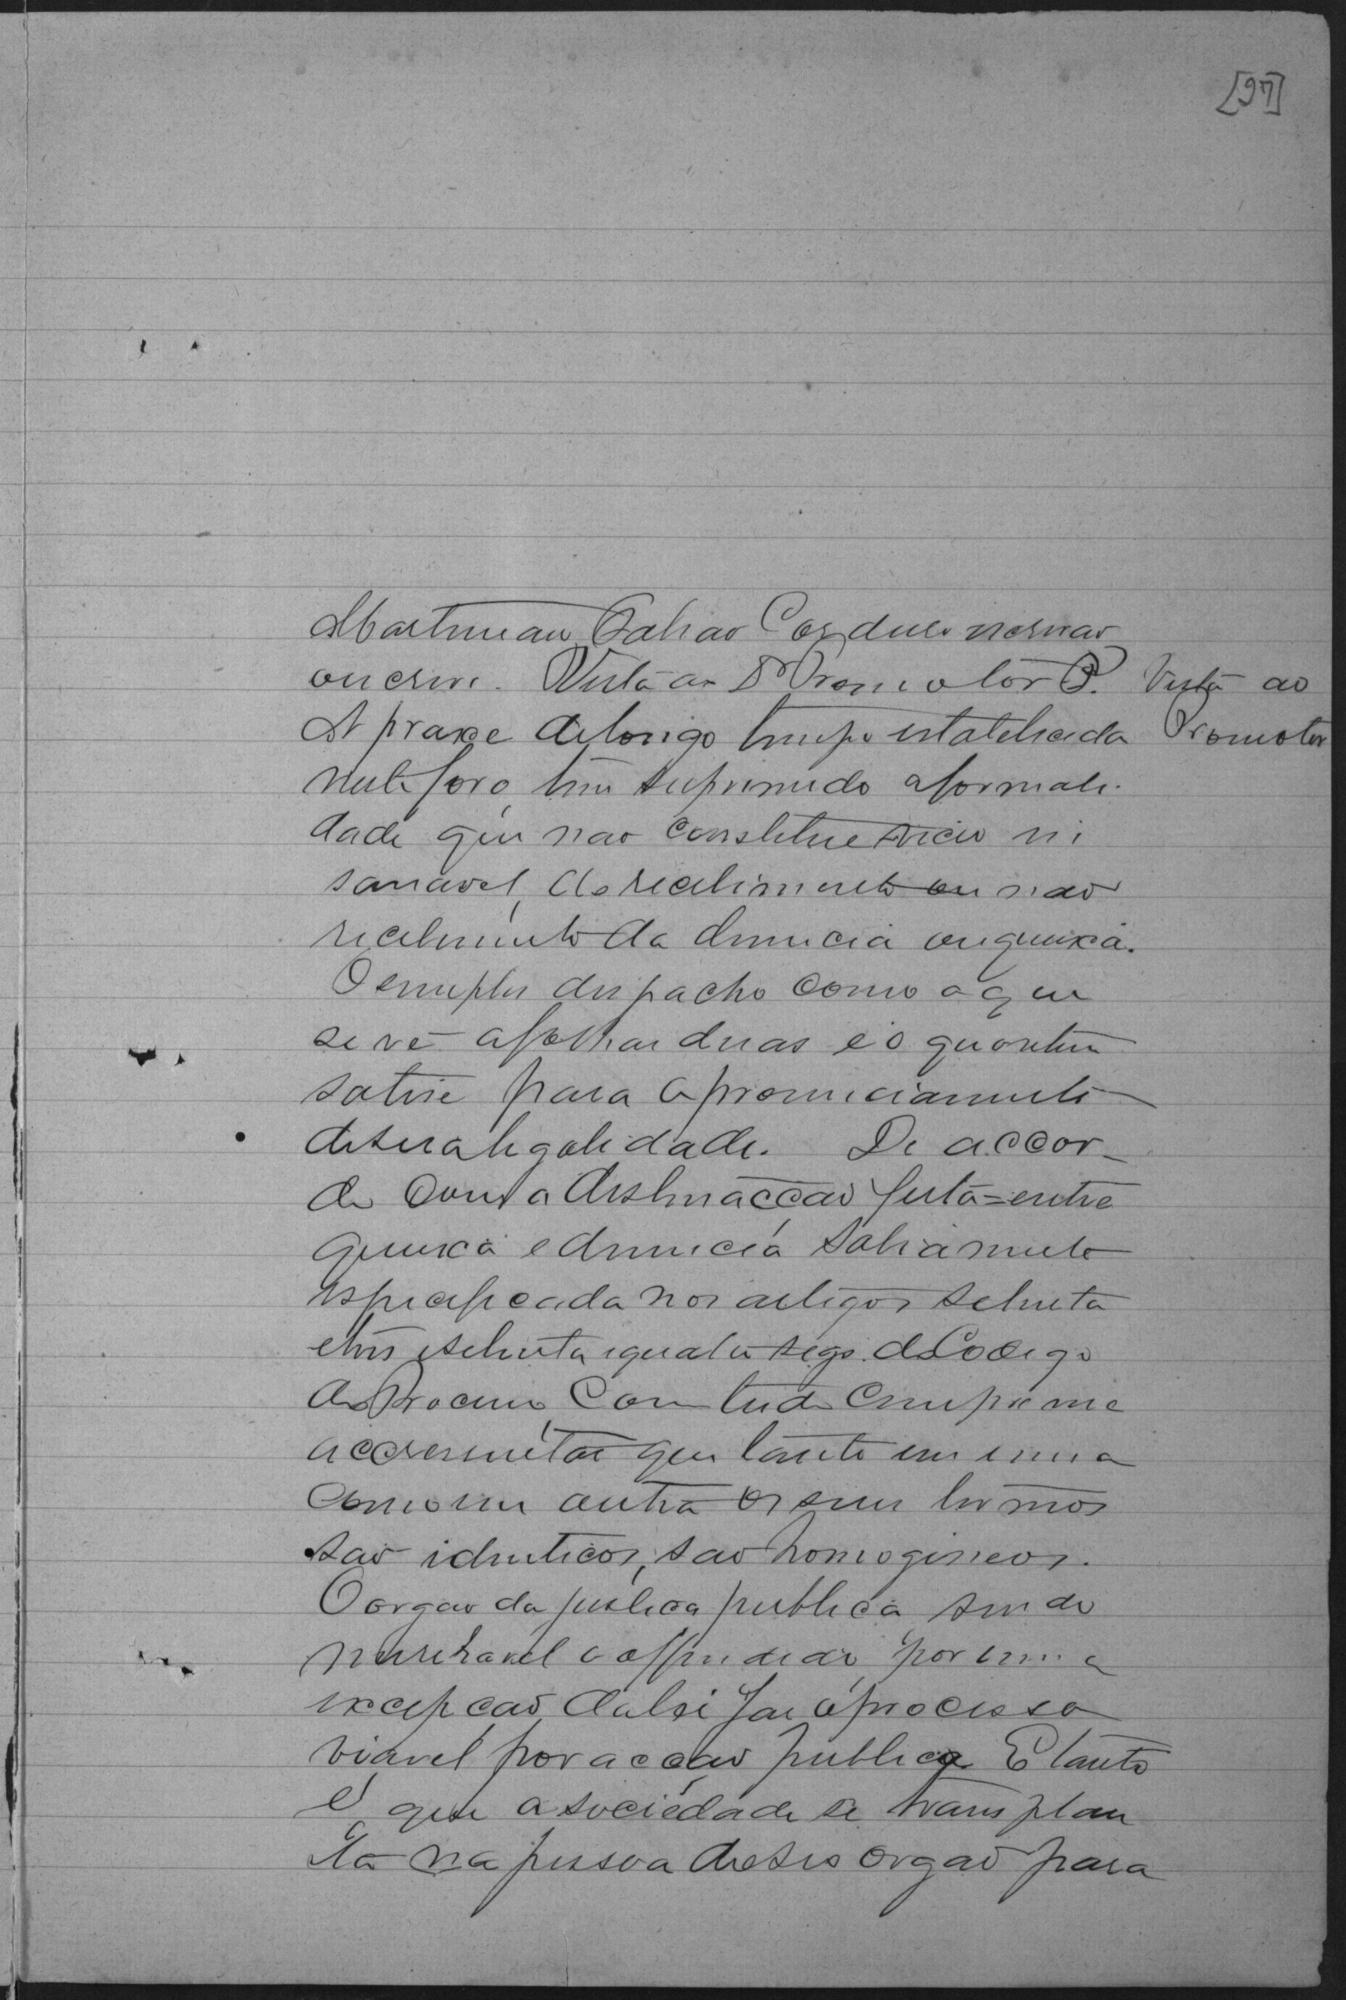 [97]
Martiniano Galvão Cardoso escrivão
o escrevi. Vista ao Dr Promotor P.
Vista ao
Promotor
A praxe de longo tempo estabelecida
neste foro, tem suprimido a formali-
dade que não constitue vicio in
sanavel, do recebimento ou não
recebimento da denuncia ou queixa.
O simples despacho como o que
se vê a folhas duas é o quantum
satine para o pronunciamento
de sua legalidade. De accor-
do com a distinacção feita entre
queixa e denuncia sabiamente
especificada nos artigos setenta
e tres e setenta e quatro e segs. do Codigo
do Processo, Com tudo cumpre me
accrescentar que tanto em uma
como em outra os seus termos
são identicos, são homogineos.
O orgão da justiça publica sendo
miseravel o offendido, por uma
excepção da lei faz o processo
viavel por acção publica E tanto
é que a sociedade se transplan
ta na pessoa de seo orgão para